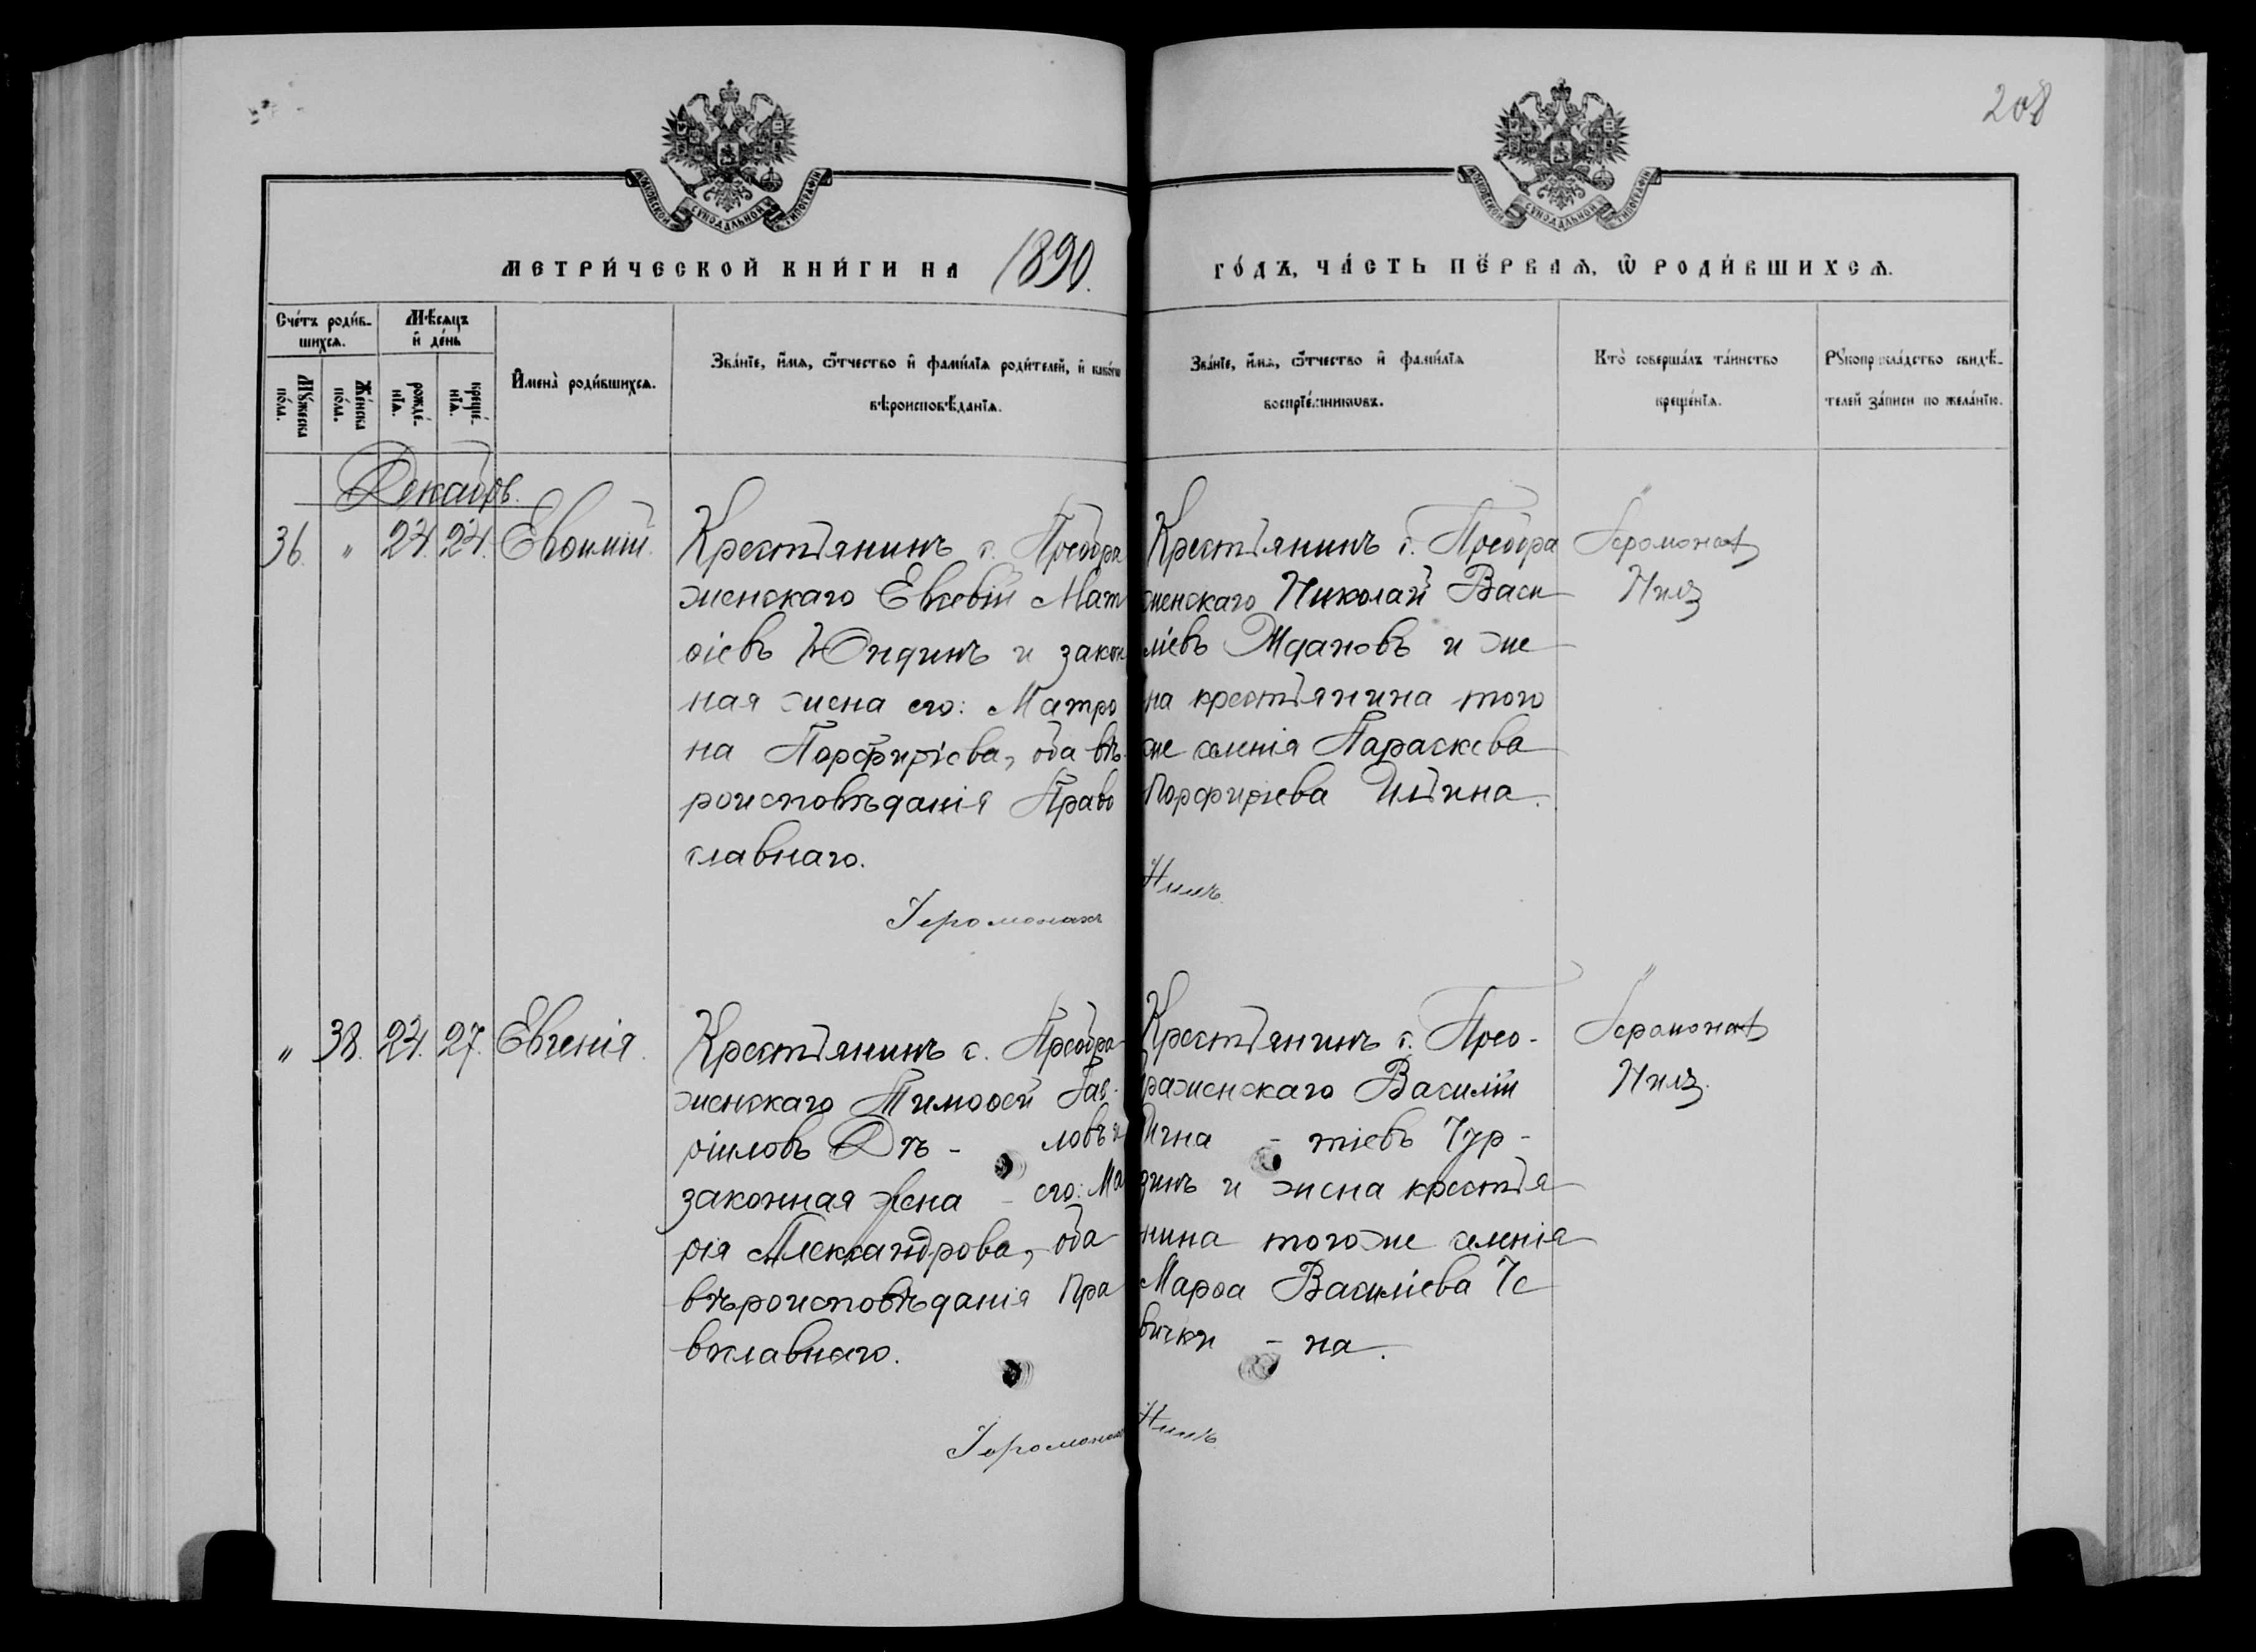 208
МОСКОВСКОЙ СУНОДАЛЬНОЙ ТИПОГРАФІИ
МОСКОВСКОЙ СУНОДАЛЬНОЙ ТИПОГРАФІИ
МЕТРИ́ЧЕСКОЙ КНИ́ГИ НА 1890.
ГО́ДЪ, ЧА́СТЬ ПЕ́РВАѦ, Ѿ РОДИ́ВШИХСѦ.
Сче́тъ роди́в-
шихсѧ.
Мꙋ́жеска
по́ла.
Же́нска
по́ла.
Мѣ́сѧцъ
и҆ де́нь
рожде́-
нїѧ.
креще́-
нїѧ.
И҆мена̀ роди́вшихсѧ.
Зва́нїе, и҆́мѧ, ѻ҆́тчество и҆ фами́лїѧ роди́телей, и҆ како́гѡ
вѣроисповѣ́данїѧ.
Зва́нїе, и҆́мѧ, ѻ҆́тчество и҆ фами́лїѧ
воспрїе́мникѡвъ.
Кто̀ соверша́лъ та́инство
креще́нїѧ.
Рꙋкоприкла́дство свидѣ́-
телей за́писи по жела́нїю.
Декабрь.
36. " 24. 24. Евѳимій.
Крестьянинъ с. Преобра
женскаго Евсевій Мат
ѳіевъ Юндинъ и закон
ная жена его: Матро
на Порфиріева, оба вѣ-
роисповѣданія Право
славнаго.
Іеромонахъ
Крестьянинъ с. Преобра
женскаго Николай Васи
ліевъ Ждановъ и же
на крестьянина того
же селенія Параскева
Порфиріева Ильина.
Нилъ.
Іеромонахъ
Нилъ
" 38. 24. 27. Евгенія.
Крестьянинъ с. Преобра-
женскаго Тимоѳей Гав-
ріиловъ Дѣ - ловъ и
законная жена - его: Ма
рія Александрова, оба
вѣроисповѣданія Пра
вославнаго.
Іеромонахъ
Крестьянинъ с. Прео-
браженскаго Василій
Игна - тіевъ Чур-
зинъ и жена крестья
нина тогоже селенія
Марѳа Василіева Че
вички - на.
Нилъ.
Іеромонахъ
Нилъ.